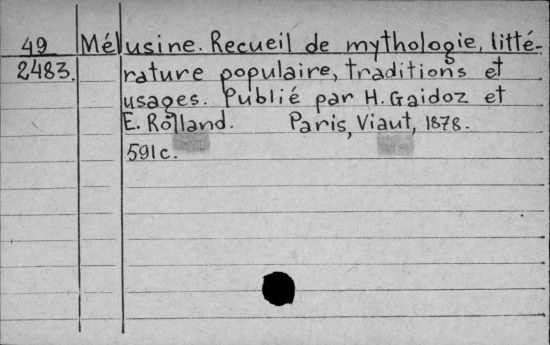 49 Mélusine. Recueil de mythologie, litté-
2483. rature populaire, traditions et
usages. Publié par H. Gaidoz et
E. Rolland. Paris, Viaut, 1878.
591c.